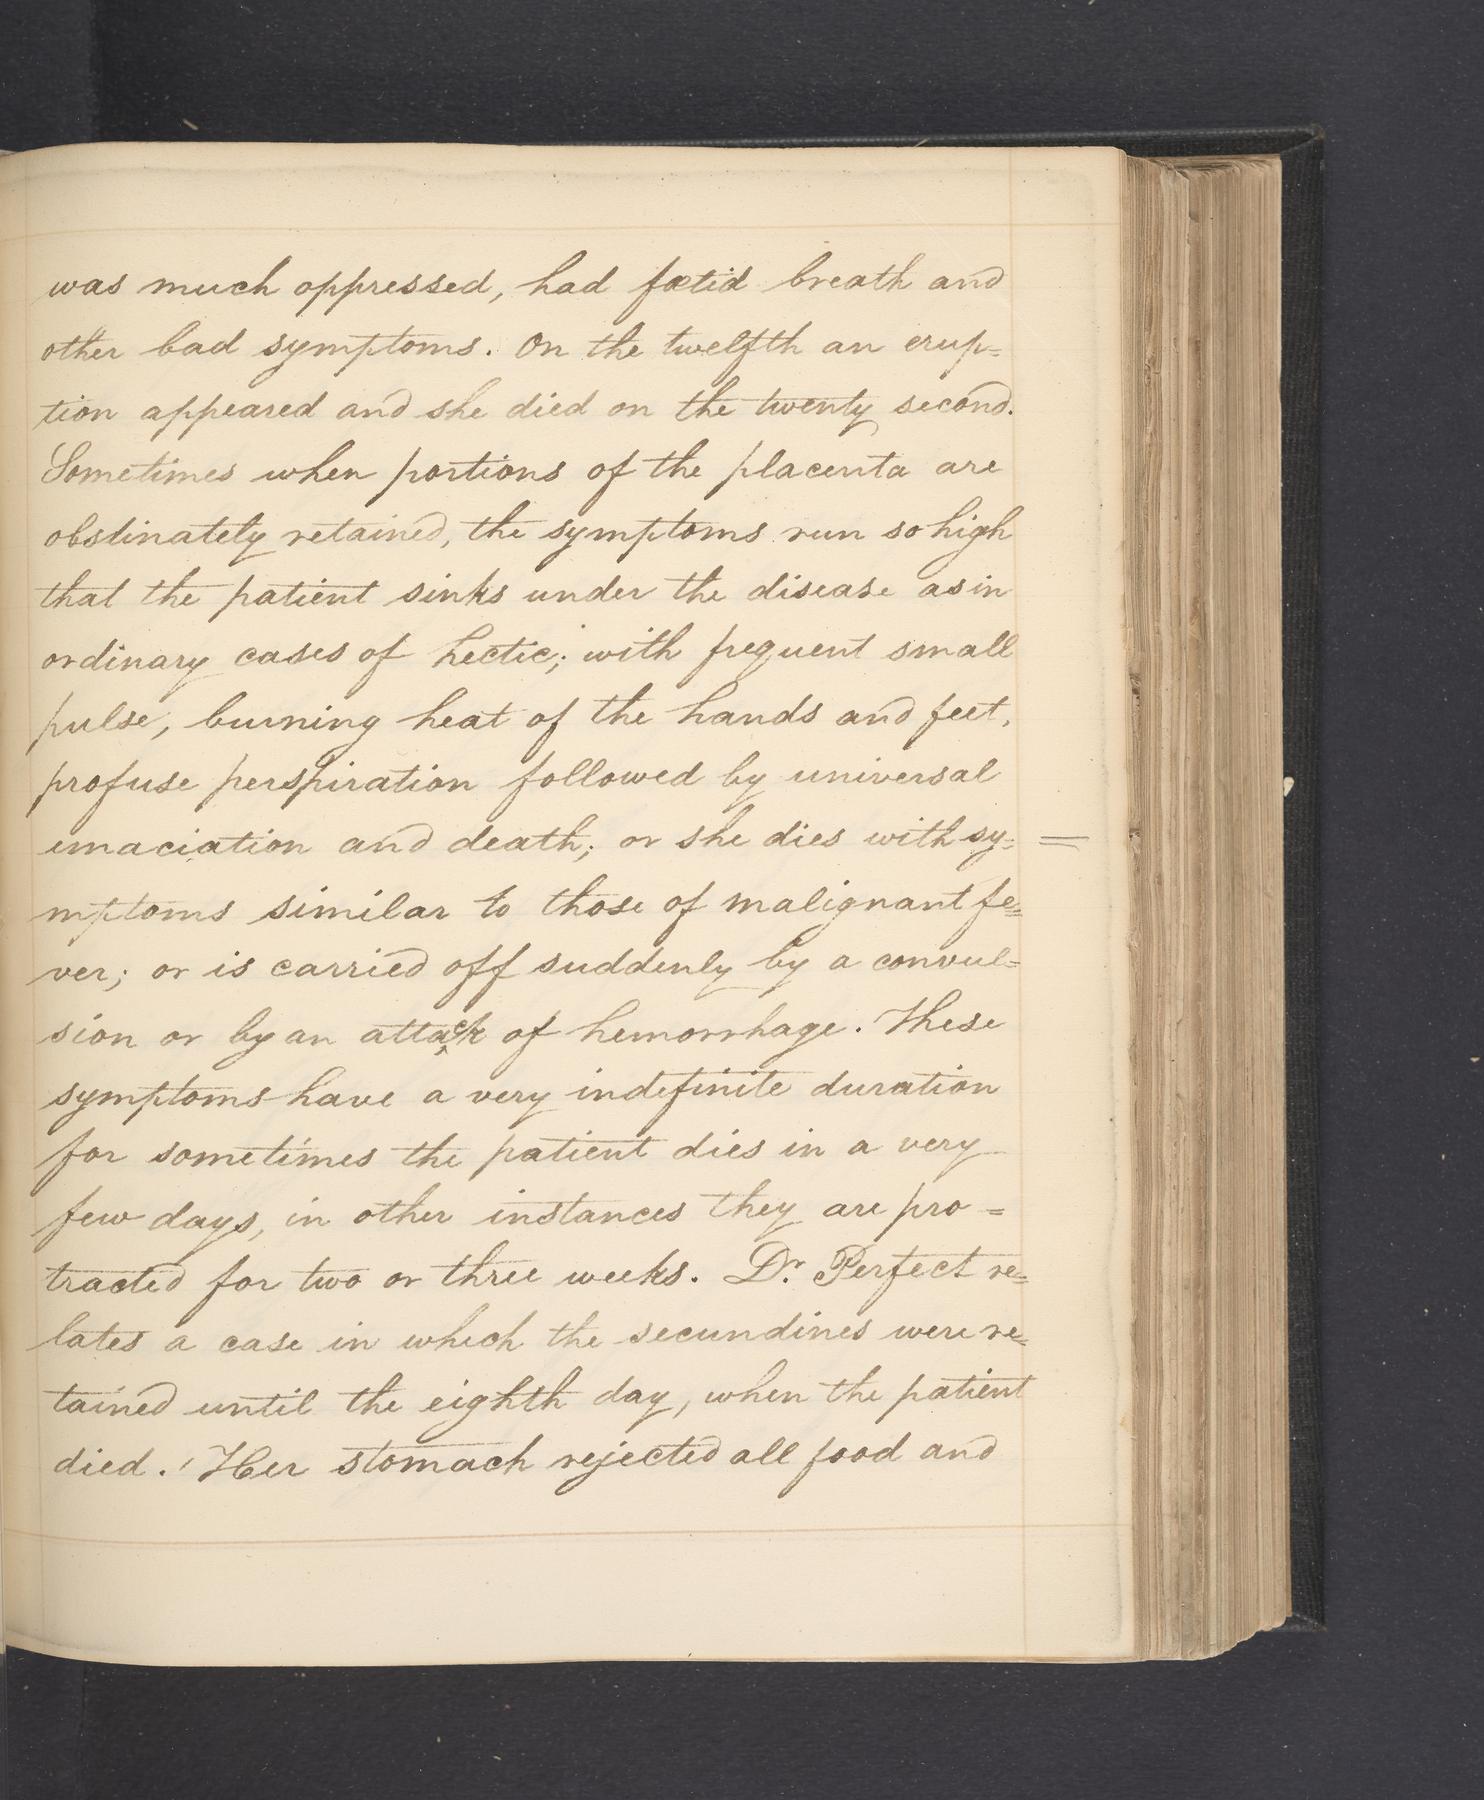 was much oppressed, had fœtid breath and
other bad symptoms. On the twelfth an erup=
tion appeared and she died on the twenty second.
Sometimes when portions of the placenta are
obstinately retained, the symptoms run so high
that the patient sinks under the disease as in
ordinary cases of hectic; with frequent small
pulse, burning heat of the hands and feet,
profuse perspiration followed by universal
emaciation and death; or she dies with sy= =
mptoms similar to those of malignant fe=
ver; or is carried off suddenly by a convul=
sion or by an attack of hemorrhage. These
symptoms have a very indefinite duration
for sometimes the patient dies in a very
few days, in other instances they are pro=
tracted for two or three weeks. Dr. Perfect re=
lates a case in which the secundines were re=
tained until the eighth day, when the patient
died. Her stomach rejected all food and